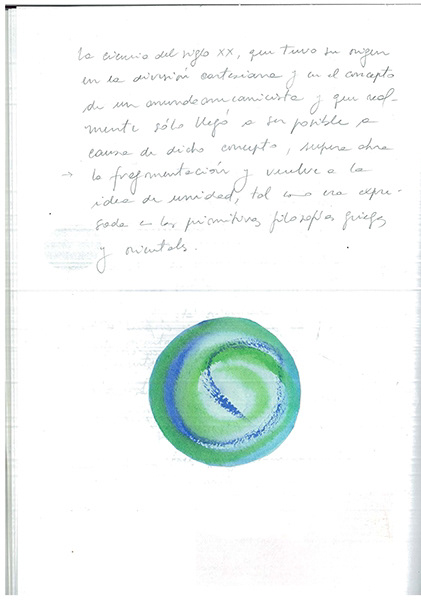 La ciencia del siglo XX, que tuvo su origen
en la división cartesiana y en el concepto
de un mundo mecanicista y que real-
mente sólo llegó a ser posible a
causa de dicho concepto, supera ahora
→ la fragmentación y vuelve a la
idea de unidad, tal como era expre-
sada en las primitivas filosofías griegas
y orientales.